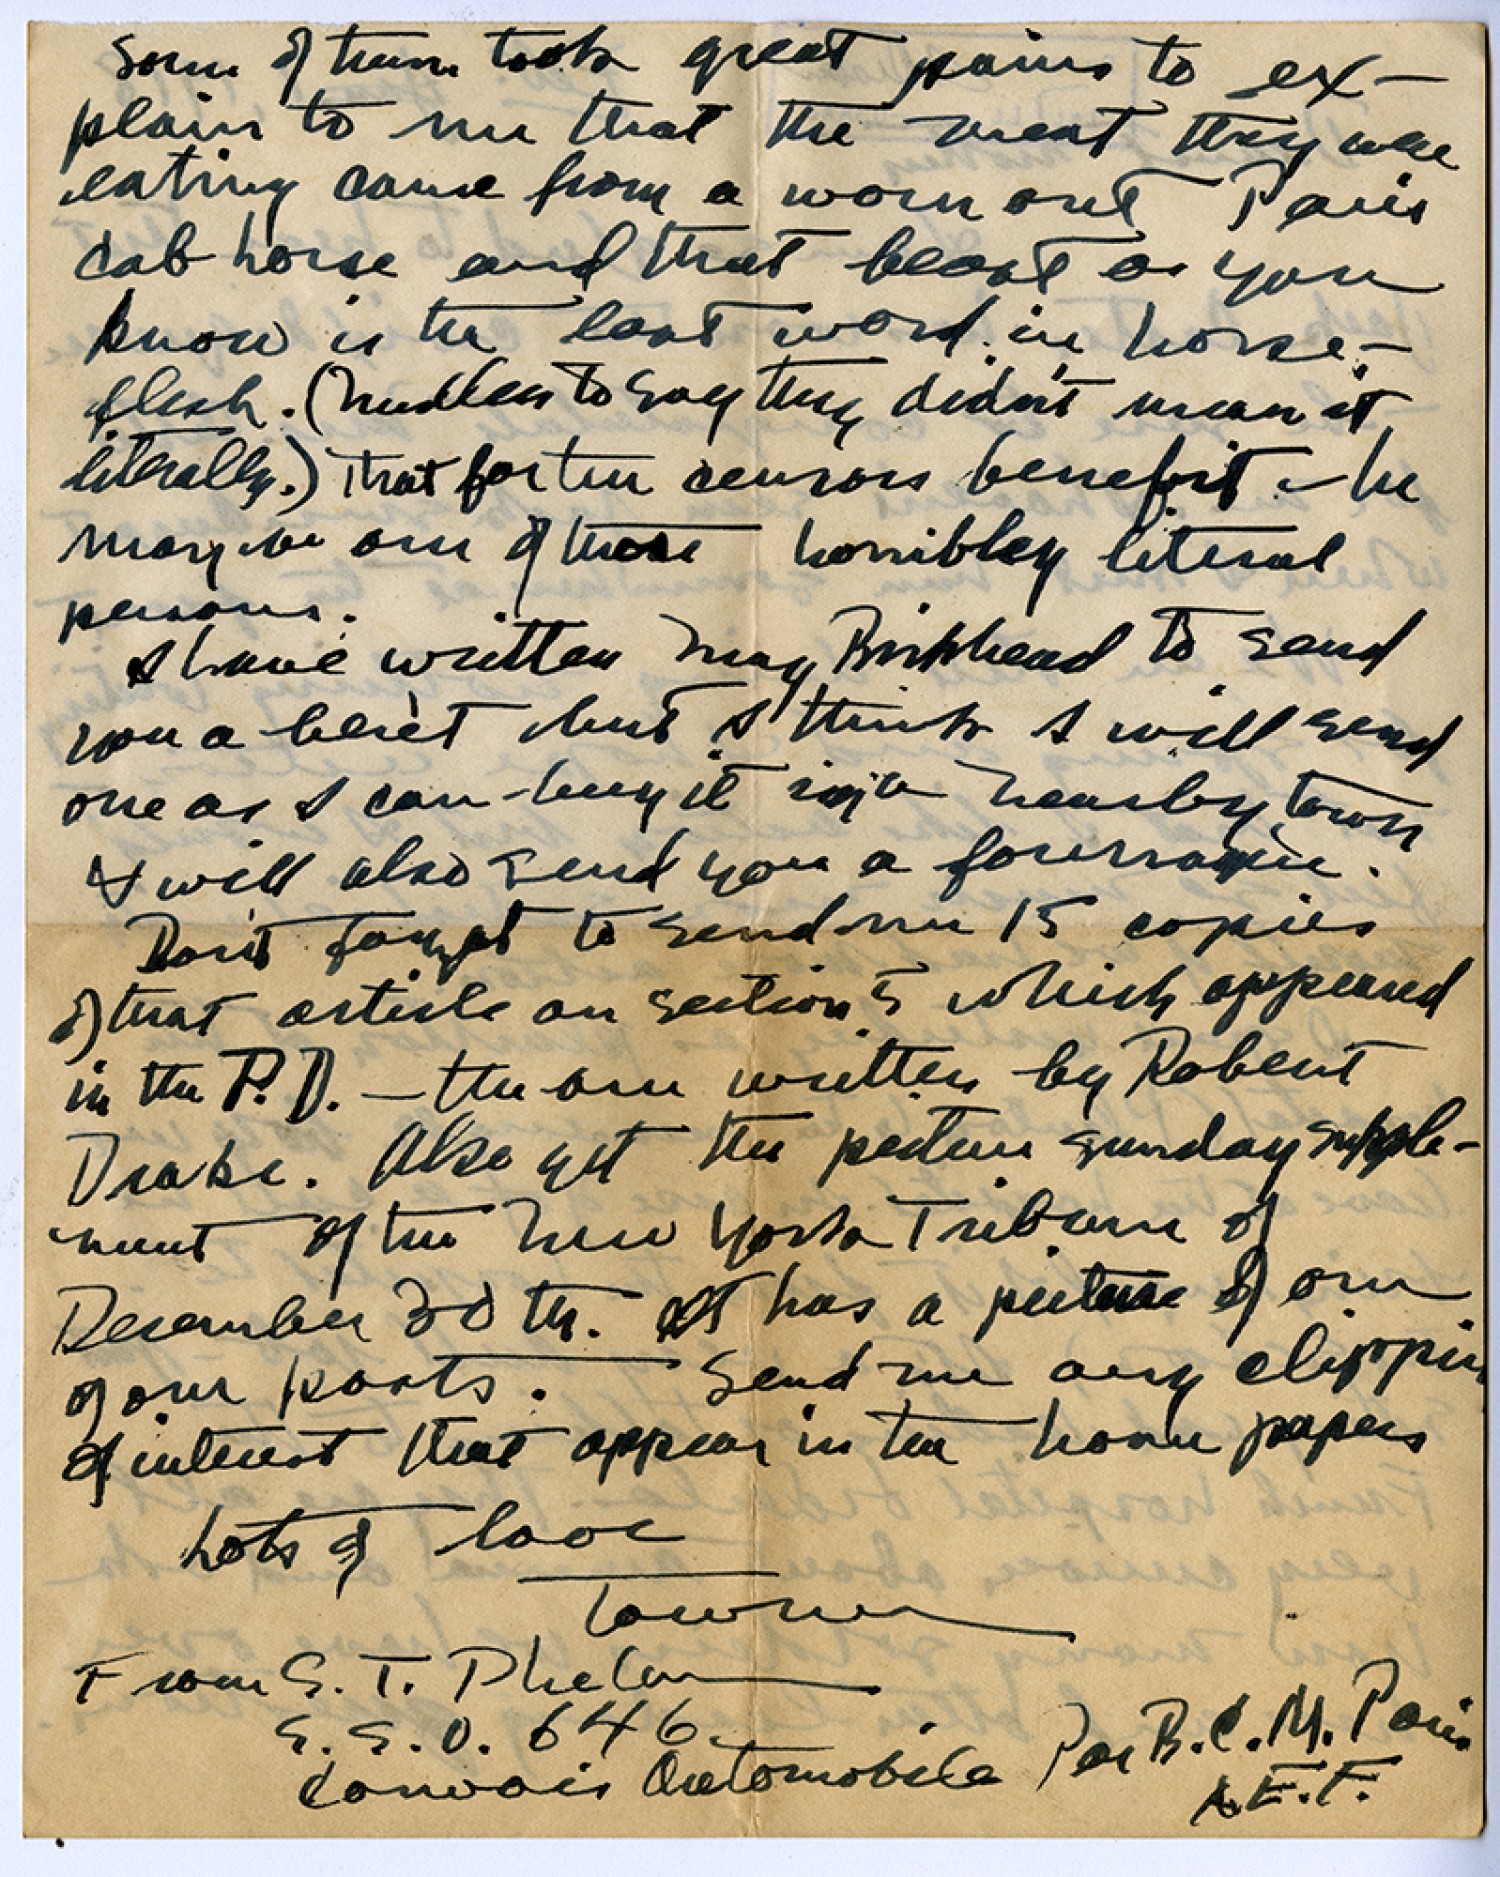 Some of them took great pains to ex-
plain to me that the meat they were
eating came from a worn out Paris
cab horse and that beast as you
know is the last word in horse-
flesh. (Needless to say they didn't mean it
literally.) That for the censors benefit - he
may be one of these horribley literal
persons.
I have written May Birkhead to send
you a beret but I think I will send
one as I can buy it in a nearby town
I will also send you a fourragere.
Don't forget to send me 15 copies
of that article on Section 5 which appeared
in the P.D. - the one written by Robert
Drake. Also get the picture Sunday supple-
ment of the New York Tribune of
December 30th. It has a picture of one
of our posts. Send me any clipping
of interest that appear in the home papers
Lots of love
Towne
From S. T. Phelan
S.S.U. 646
Convois Automobile Par B.C.M. Paris
A.E.F.